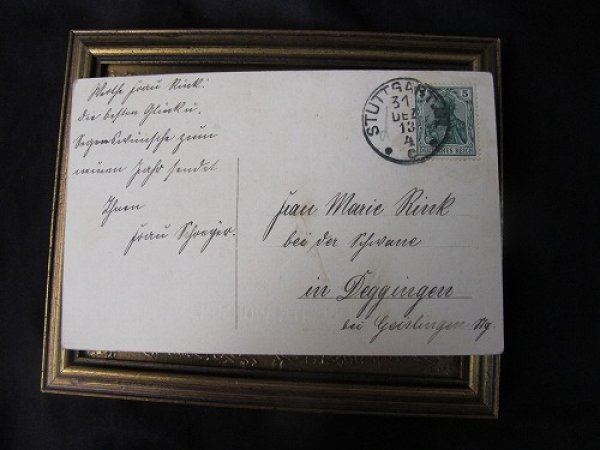 Werthe Frau Rink.
die besten Glück u.
Segenswünsche zum
neuen Jahr sendet
Ihnen
Frau
STUTTGART
31
DEZ
13
5
DEUTSCHES REICH
Frau Marie Rink
bei der Schwane
in Deggingen
bei Geislingen